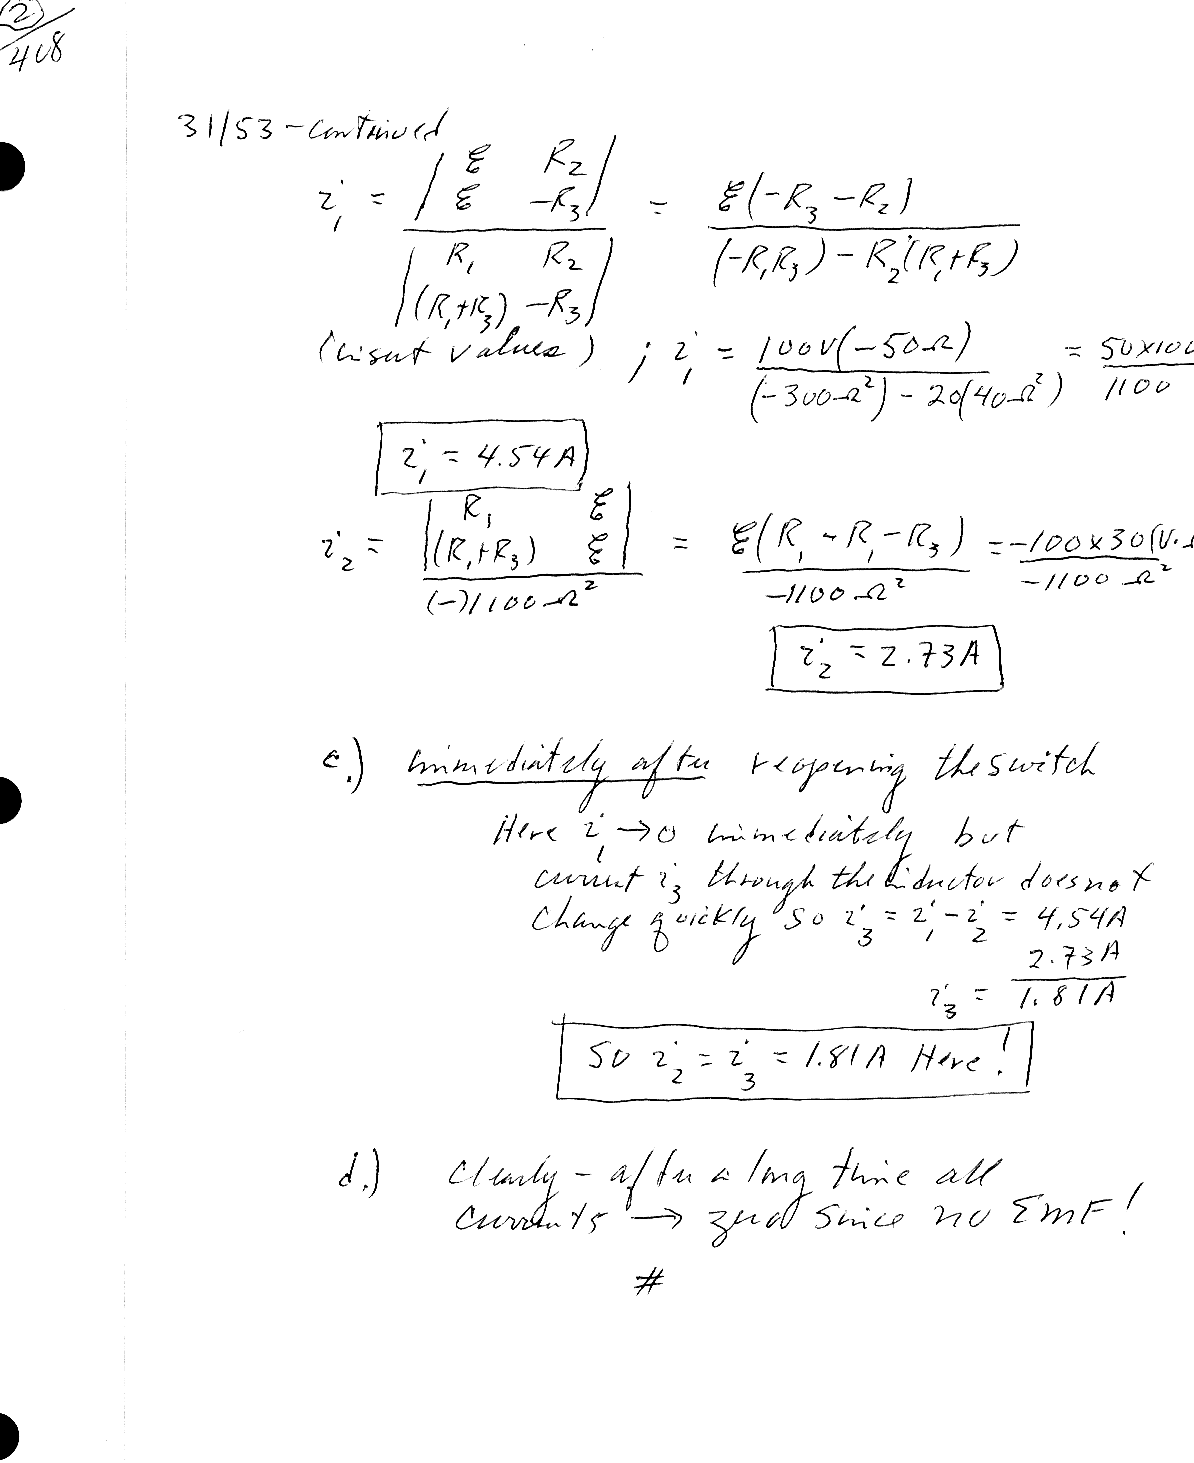 2
408
31/53 - Continued
i₁ = | ℰ R₂ | = ℰ(-R₃ - R₂)
| ℰ -R₃ | (-R₁R₃) - R₂(R₁+R₃)
| R₁ R₂ |
| (R₁+R₃) -R₃ |
(insert values) ; i₁ = 100V(-50Ω) = 50x100
(-300Ω²) - 20(40Ω²) 1100
i₁ = 4.54 A
i₂ = | R₁ ℰ | = ℰ(R₁ - R₁ - R₃) = -100 x 30(V.
| (R₁+R₃) ℰ | -1100 Ω² -1100 Ω²
(-)1100 Ω²
i₂ = 2.73A
c.) immediately after reopening the switch
Here i₁ → 0 immediately but
current i₃ through the inductor does not
Change quickly so i₃ = i₁ - i₂ = 4.54A
2.73A
i₃ = 1.81A
So i₂ = i₃ = 1.81A Here!
d.) Clearly - after a long time all
currents → zero since no EMF!
#